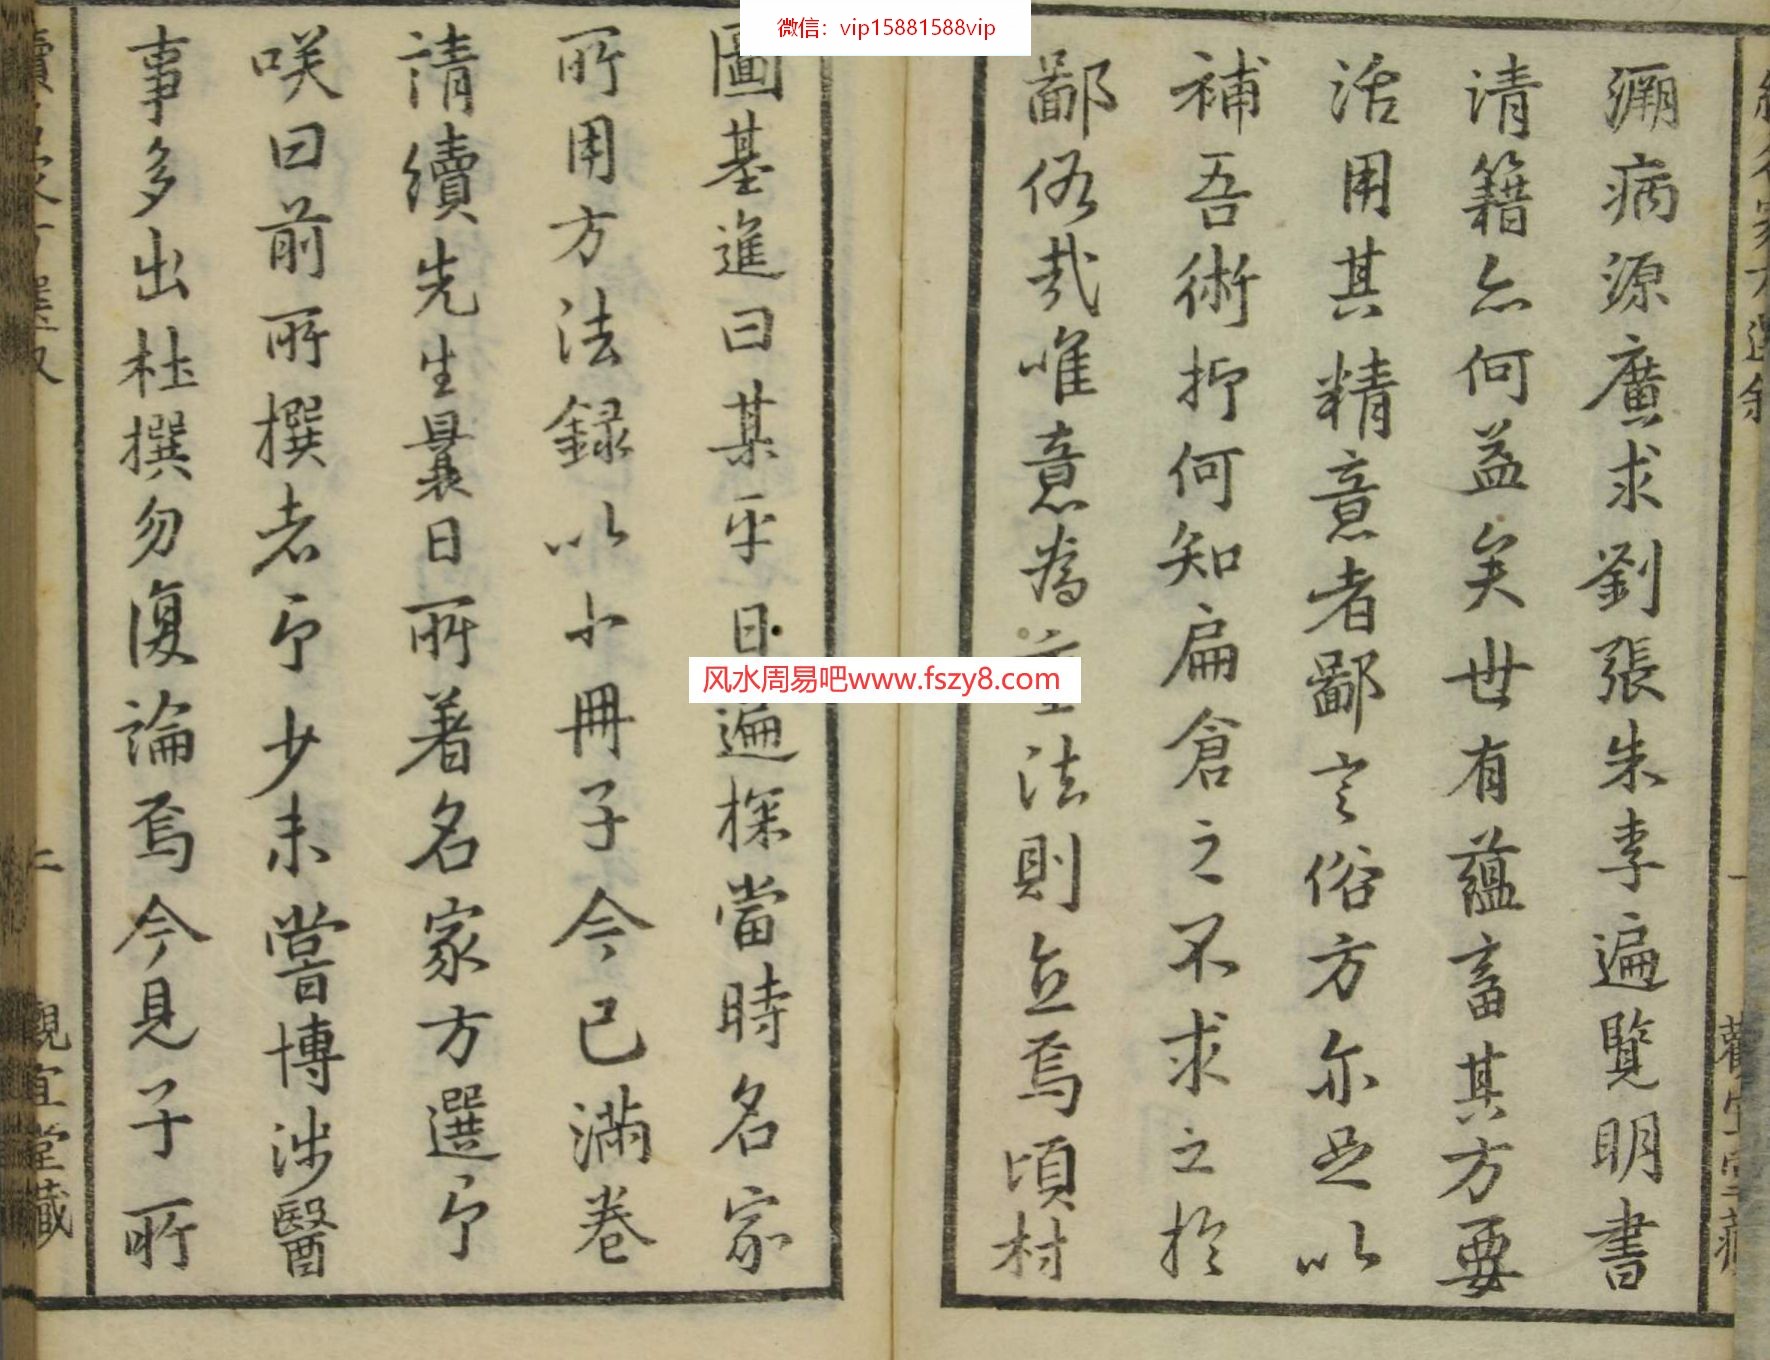 微信：vip15881588vip
一
溯病源廣求劉張朱李遍覽明書
清籍亦何益矣世有蘊畜其方要
活用其精意者鄙言俗方亦足以
補吾術抑何知扁倉之不求之於
鄙俗哉唯意為法則立焉頃村
圖基進曰某平日遍探當時名家
所用方法録以小冊子今已滿巻
請續先生曩日所著名家方選予
咲曰前所撰者予少未嘗博涉醫
事多出杜撰勿復論焉今見子所
二
觀宜堂藏
风水周易吧www.fszy8.com